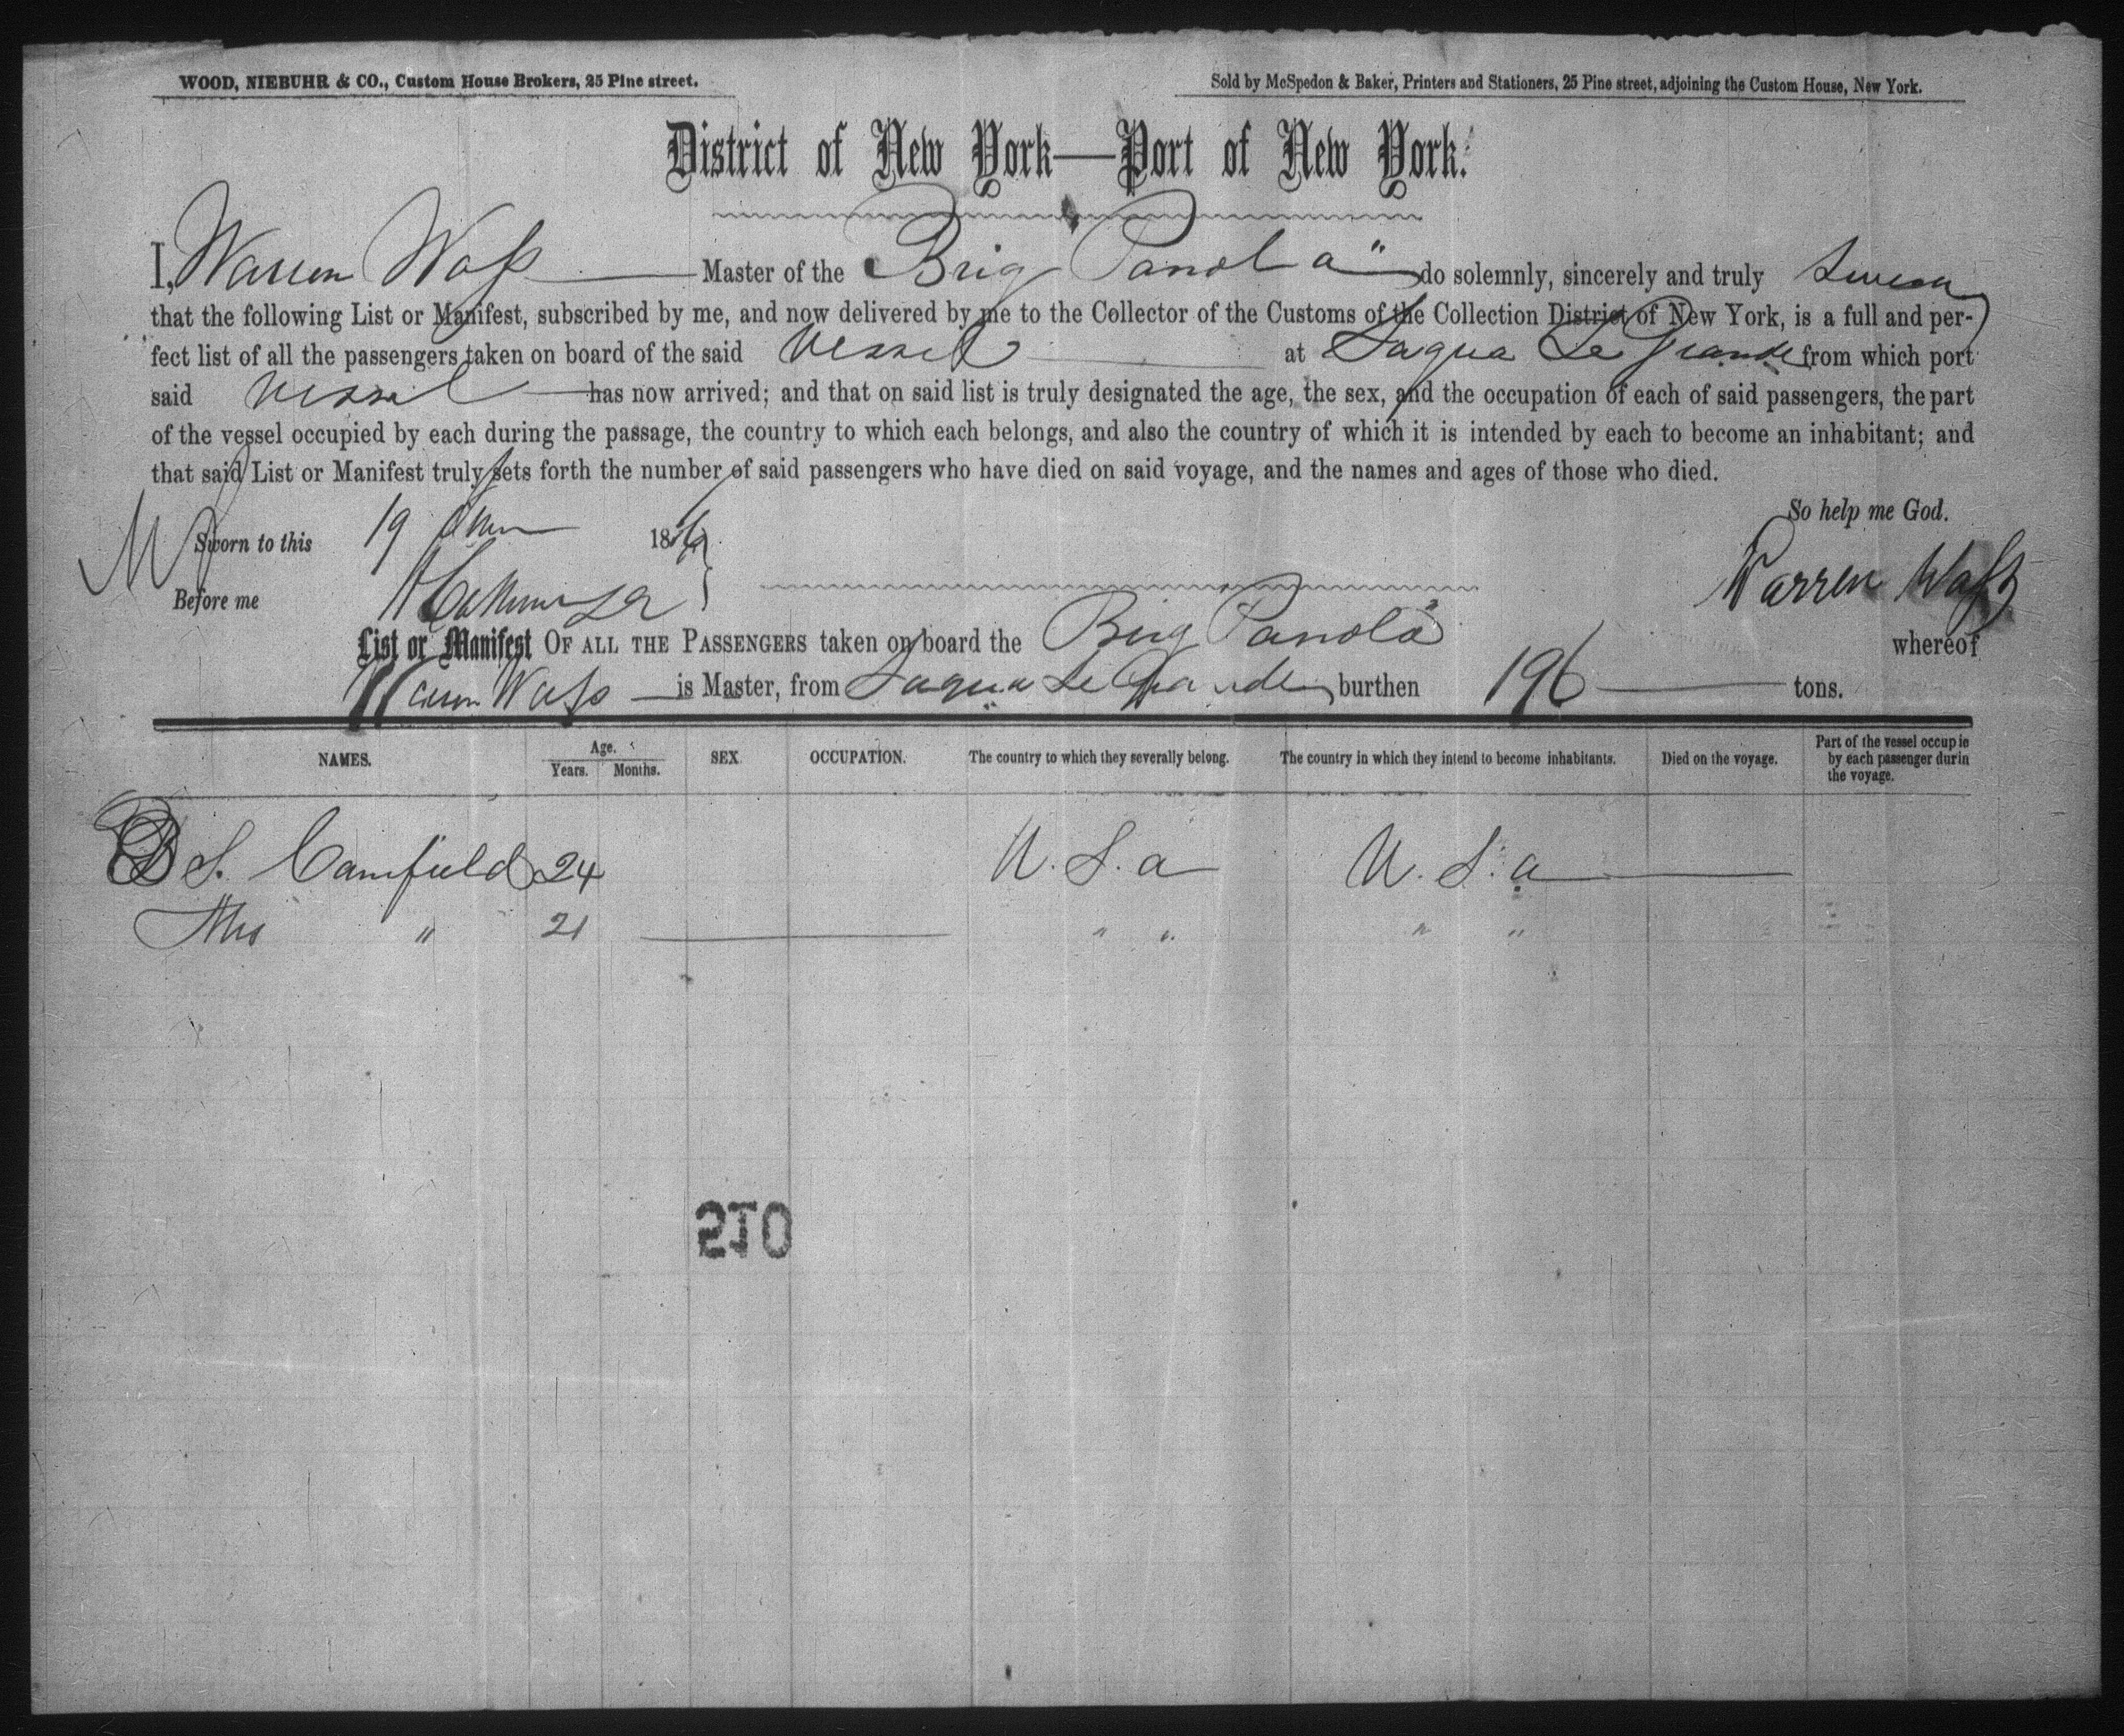 WOOD, NIEBUHR & CO., Custom House Brokers, 25 Pine street.
Sold by McSpedon & Baker, Printers and Stationers, 25 Pine street, adjoining the Custom House, New York.
District of New York—Port of New York.
I, Warren Wass Master of the Brig "Panola" do solemnly, sincerely and truly swear
that the following List or Manifest, subscribed by me, and now delivered by me to the Collector of the Customs of the Collection District of New York, is a full and per-
fect list of all the passengers taken on board of the said Vessel at Sagua Le Grande from which port
said Vessel has now arrived; and that on said list is truly designated the age, the sex, and the occupation of each of said passengers, the part
of the vessel occupied by each during the passage, the country to which each belongs, and also the country of which it is intended by each to become an inhabitant; and
that said List or Manifest truly sets forth the number of said passengers who have died on said voyage, and the names and ages of those who died.
So help me God.
Sworn to this 19 18
Before me
Warren Wass
List or Manifest OF ALL THE PASSENGERS taken on board the Brig Panola whereof
Warren Wass is Master, from Sagua Le Grande, burthen 196 tons.
NAMES. Age. Years. Months. SEX. OCCUPATION. The country to which they severally belong. The country in which they intend to become inhabitants. Died on the voyage. Part of the vessel occupie by each passenger durin the voyage.
S. Camfield 24 U.S.a U.S.a
Mrs " 21 " " " "
012